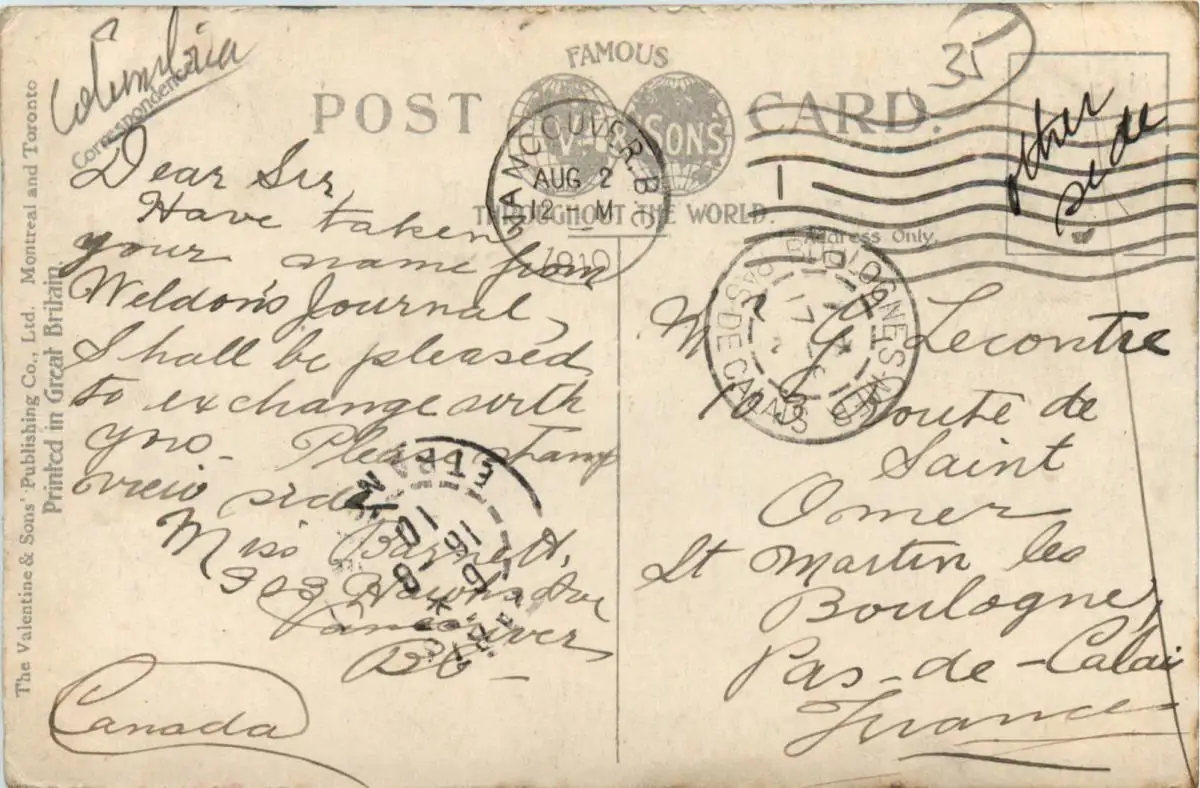 Columbia
Correspondence
35
FAMOUS
POST CARD.
V & SONS
THROUGHOUT THE WORLD.
Address Only.
other
side
VANCOUVER. B C
AUG 2
12 - M
1910
1
BOULOGNE-S-MER
PAS-DE-CALAIS
17
Dear Sir
Have taken
your name from
Weldon's Journal,
Shall be pleased
to exchange with
you. Please stamp
view side
Miss
Vancouver
B C -
Canada
ETRA
16
8
10
Lecontre
10 Route de
Saint
Omer
St Martin les
Boulogne,
Pas-de-Calai
France
The Valentine & Sons' Publishing Co., Ltd. Montreal and Toronto
Printed in Great Britain.